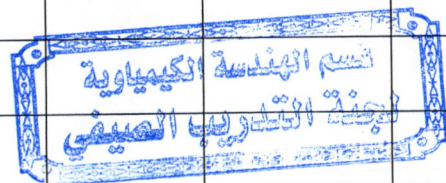 قسم الهندسة الكيمياوية
لجنة التدريب الصيفي